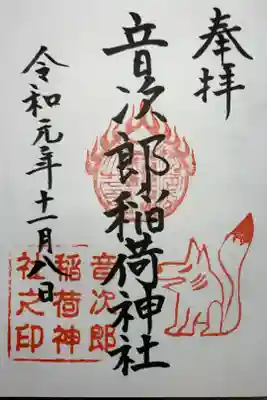 奉拝
音次郎稲荷神社
令和元年十一月八日
音次郎
稲荷神
社之印